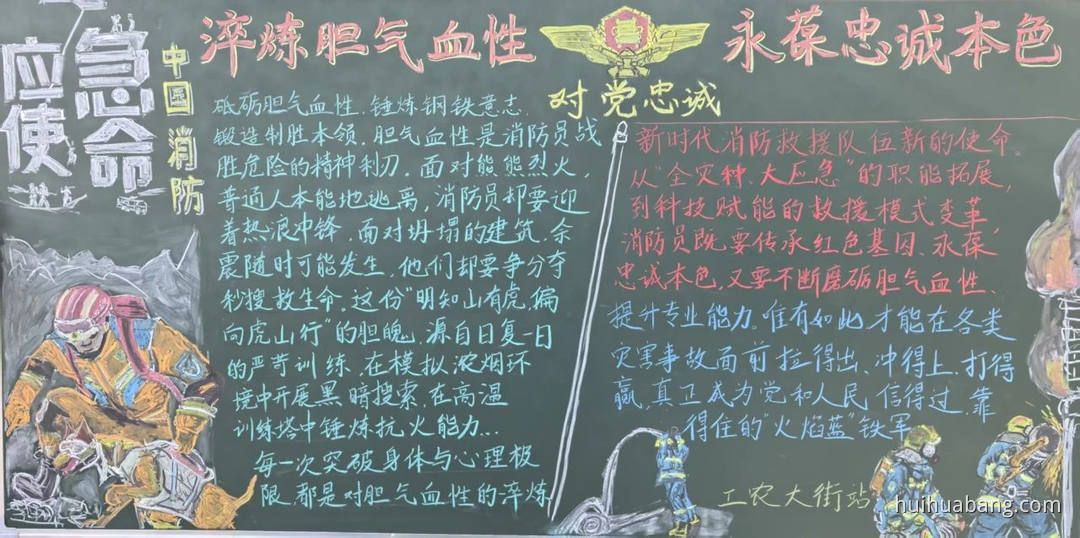 淬炼胆气血性
永葆忠诚本色
应急
使命
中国消防
对党忠诚
砥砺胆气血性、锤炼钢铁意志、
锻造制胜本领。胆气血性是消防员战
胜危险的精神利刃。面对熊熊烈火，
普通人本能地逃离，消防员却要迎
着热浪冲锋。面对坍塌的建筑，余
震随时可能发生，他们却要争分夺
秒搜救生命。这份“明知山有虎，偏
向虎山行”的胆魄，源自日复一日
的严苛训练，在模拟浓烟环
境中开展黑暗搜索，在高温
训练塔中锤炼抗火能力…
每一次突破身体与心理极
限，都是对胆气血性的淬炼
新时代消防救援队伍新的使命。
从“全灾种、大应急”的职能拓展，
到科技赋能的救援模式变革，
消防员既要传承红色基因、永葆
忠诚本色，又要不断磨砺胆气血性、
提升专业能力。唯有如此才能在各类
灾害事故面前拉得出、冲得上、打得
赢，真正成为党和人民信得过、靠
得住的“火焰蓝”铁军
工农大街站
huihuabang.com